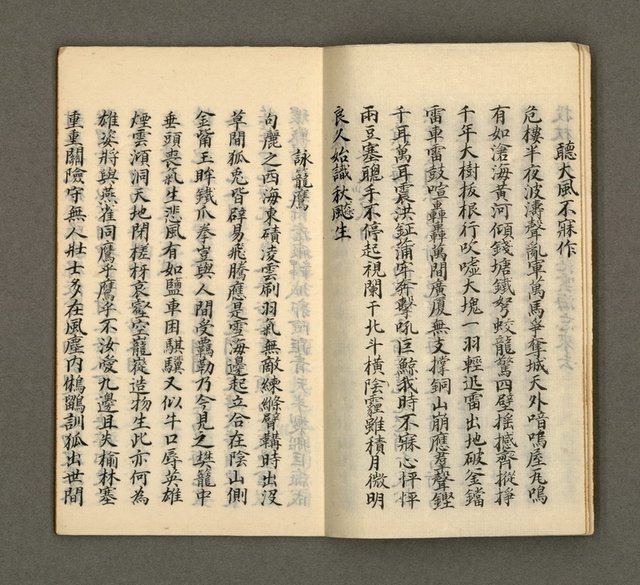 聽大風不寐作
危樓半夜波濤聲亂軍萬馬爭奪城天外喑嗚屋瓦鳴
有如滄海黃河傾錢塘鐵弩蛟龍驚四壁摇撼齊摐掙
千年大樹拔根行吹噓大塊一羽輕迅雷出地破金鐺
雷車雷鼓喧轟轟萬間廣廈無支撐銅山崩應羣聲鏗
千耳萬耳震洪鉦蒲牢奔擊吼巨鯨我時不寐心怦怦
兩豆塞聰手不停起視闌干北斗橫陰霾雖積月微明
良久始識秋颷生
詠籠鷹
句麗之西海東磧凌雲刷羽氣無敵練絛臂鞲時出没
草間狐兎皆辟易飛騰應是雪海邊起立合在陰山側
金觜玉眸鐵爪拳豈與人間受羈勒乃今見之樊籠中
垂頭喪氣生悲風有如鹽車困騏驥又似牛口辱英雄
煙雲澒洞天地閉槎枒哀壑空巃嵸造物生此亦何為
雄姿將與燕雀同鷹乎鷹乎不汝愛九邊且失榆林塞
重重關險守無人壯士多在風塵内鵂鶹訓狐出世間